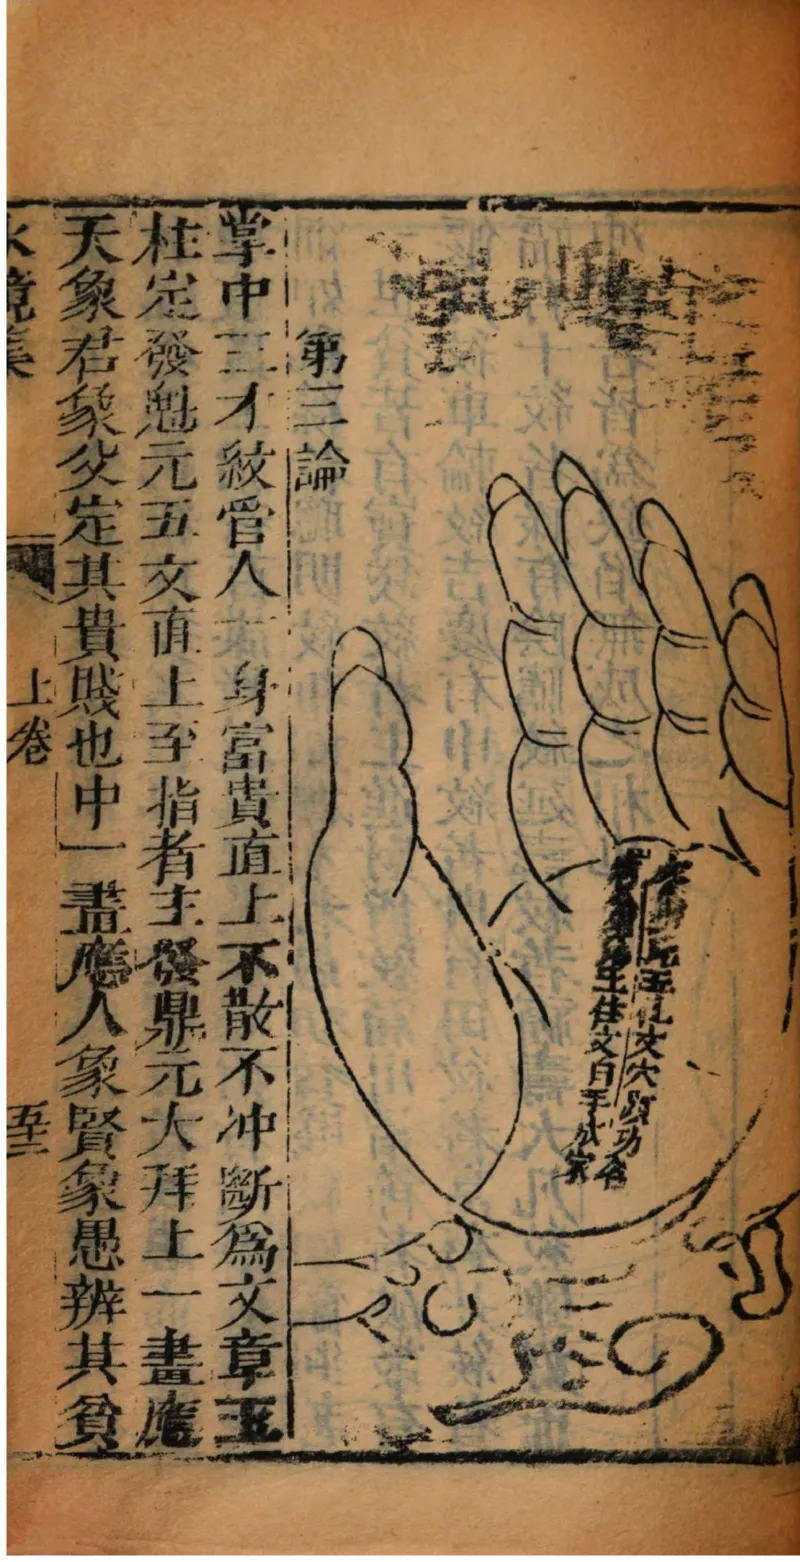 玉柱文穴政功名
生住文白手成家
第三論
掌中三才紋管人一身富貴直上不散不冲斷爲文章玉
柱定發魁元五文直上至指者主發鼎元大拜上一畫應
天象君象父定其貴賤也中一畫應人象賢象愚辨其貧
水鏡集
上卷
五十三